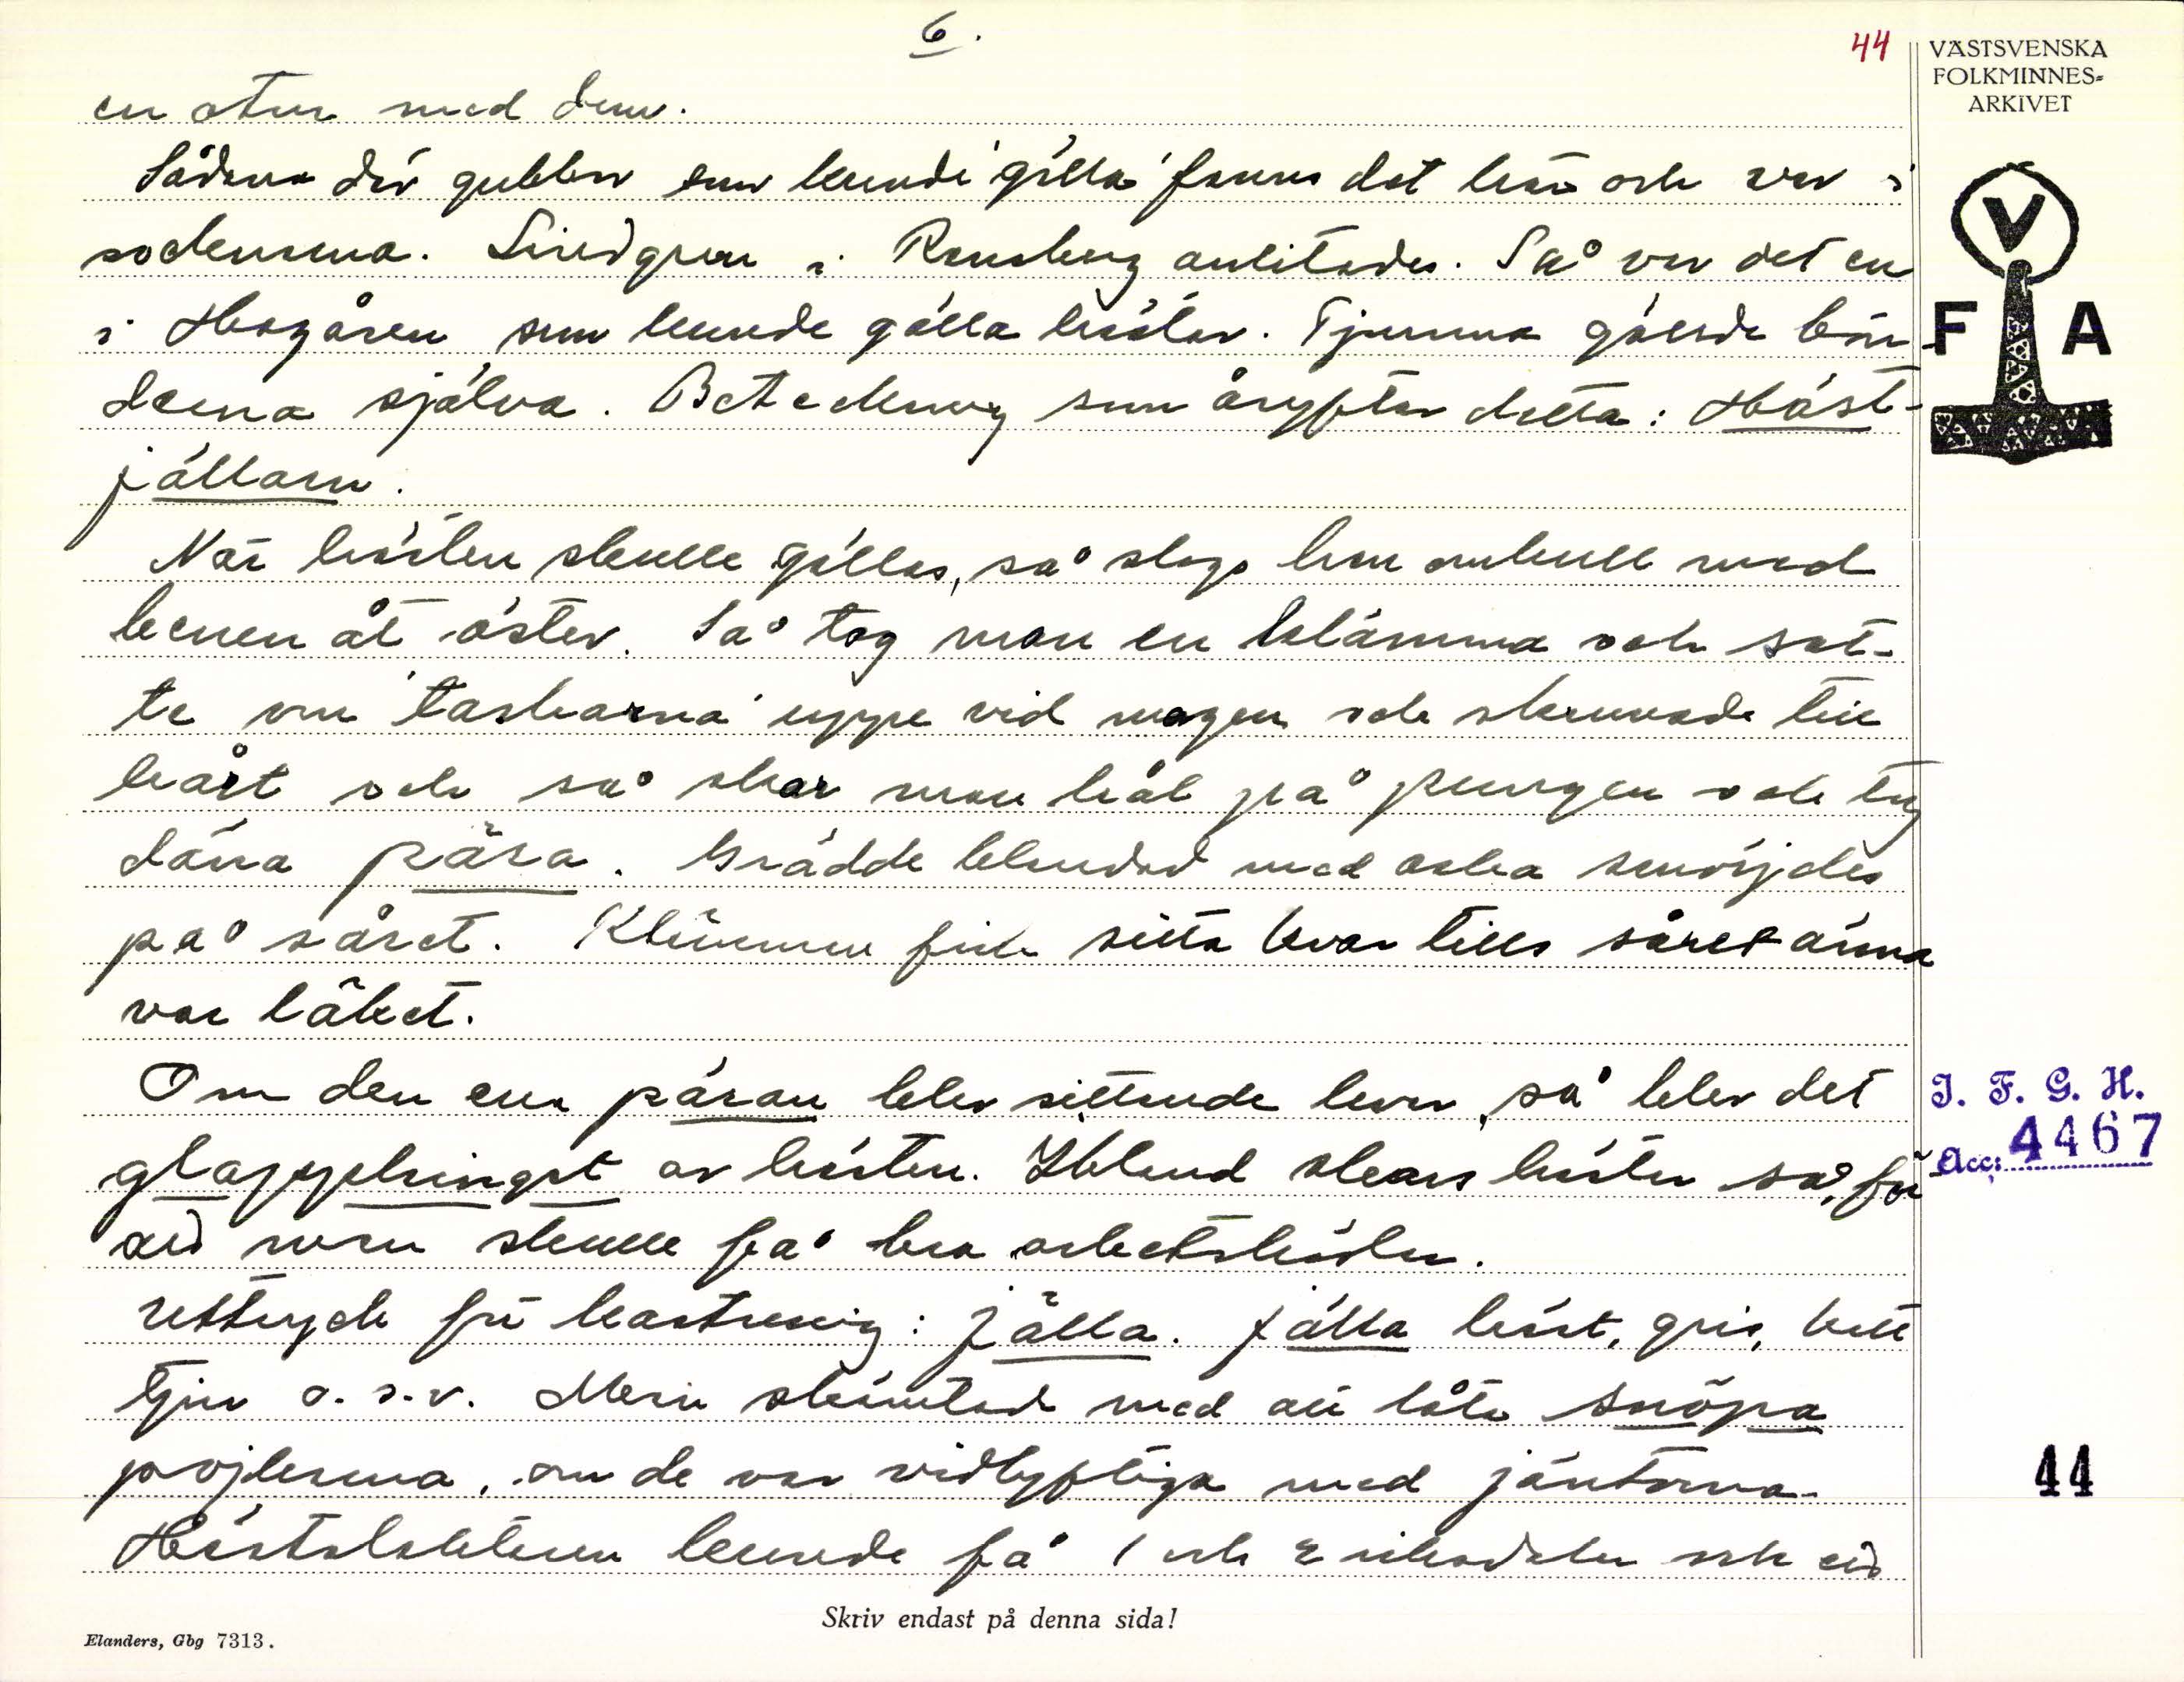 6.
44
VÄSTSVENSKA
FOLKMINNES-
ARKIVET
en otur med dem.
Sådana där gubbar som kunde 'gälla' fanns det här och var i
socknarna. Lindgren i Ransberg anlitades. Så var det en
i som kunde gälla hästar. Tjurarna gällde bön-
derna själva. Beteckning som åsyftar detta: Häst-
jällarn.
När hästen skulle gällas, så slogs han omkull med
benen åt öster. Så tog man en klämma och sat-
te om 'taskarna' uppe vid magen och skruvade till
hårt och så skar man hål på pungen och tog
dära pära. Grädde blandad med aska smörjdes
på såret. Klämman fick sitta kvar tills såret änna
var läket.
Om den ena päran blev sittande kvar, så blev det
glapphingst av hästen. Ibland skars hästen så, för
att man skulle få bra arbetshästar.
Uttryck för kastrering: jälla. jälla häst, gris, katt
tjur o.s.v. Man skämtade med att låta snöpa
pojkarna, om de var vidlyftiga med jäntorna.
Hästaklokaren kunde få 1 och 2 riksdaler och
Skriv endast på denna sida!
Elanders, Gbg 7313.
V
F A
I. F. G. H.
Acc: 4467
44